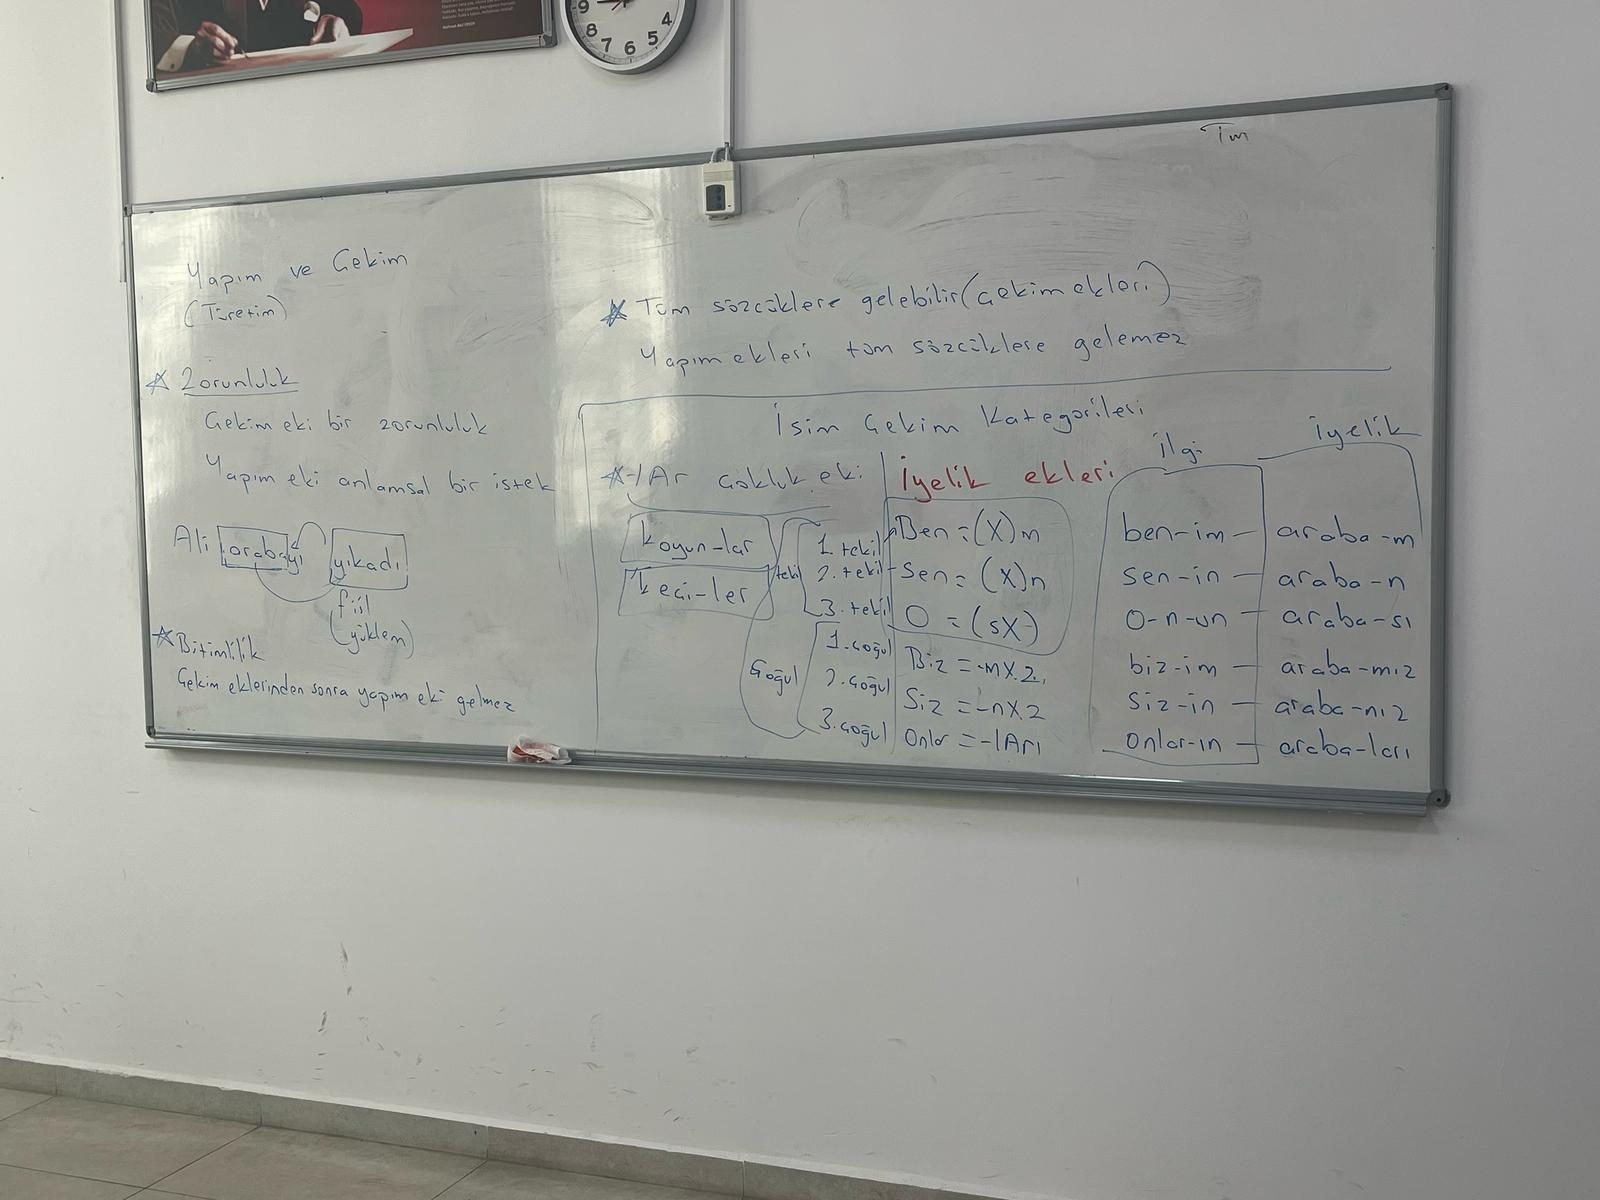 Tüm
Yapım ve Çekim
(Türetim)
★ Zorunluluk
Çekim eki bir zorunluluk
Yapım eki anlamsal bir istek
Ali arabayı yıkadı
fiil
(yüklem)
★ Bitimlilik
Çekim eklerinden sonra yapım eki gelmez
★ Tüm sözcüklere gelebilir (Çekim ekleri)
Yapım ekleri tüm sözcüklere gelemez
İsim Çekim Kategorileri
★ -lAr çokluk eki
koyun-lar
keçi-ler
İyelik ekleri
tekil
1. tekil Ben = (X)m
2. tekil Sen = (X)n
3. tekil O = (sX)
Çoğul
1. çoğul Biz = -mX.z.
2. çoğul Siz = -nX.z
3. çoğul Onlar = -lArı
İlgi İyelik
ben-im — araba-m
sen-in — araba-n
o-n-un — araba-sı
biz-im — araba-mız
siz-in — araba-nız
onlar-ın — araba-ları
9 8 7 6 5 4